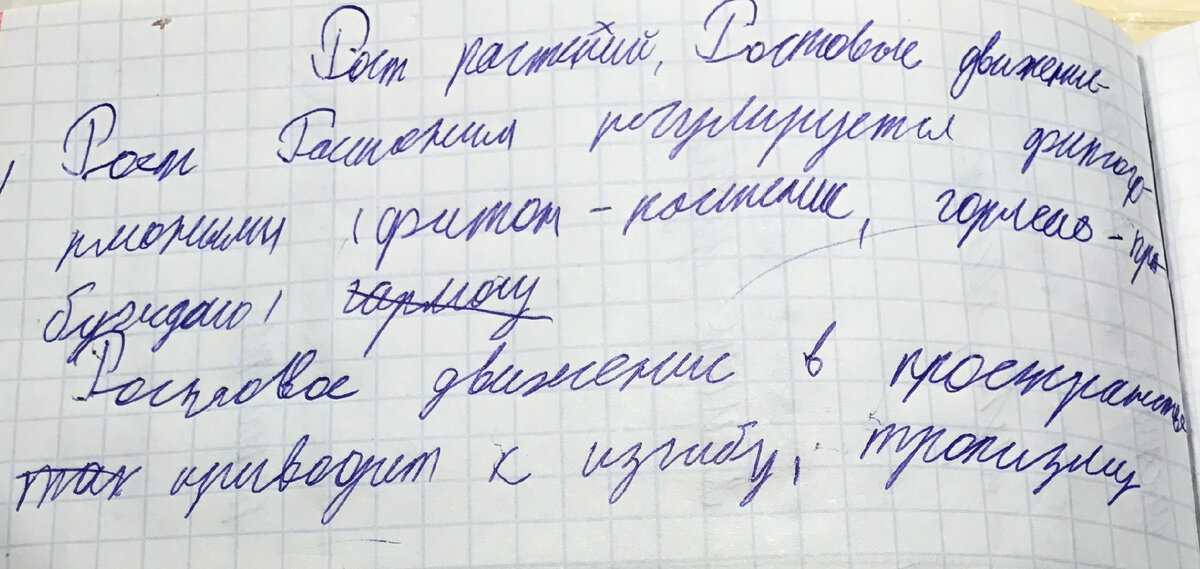 Рост растений, Ростовые движение
Рост Растения регулируется фитого-
рмонами (фитон - растение, гормао - про-
буждаю) гармону
Ростовое движение в пространстве
так приводит к изгибу, тропизму